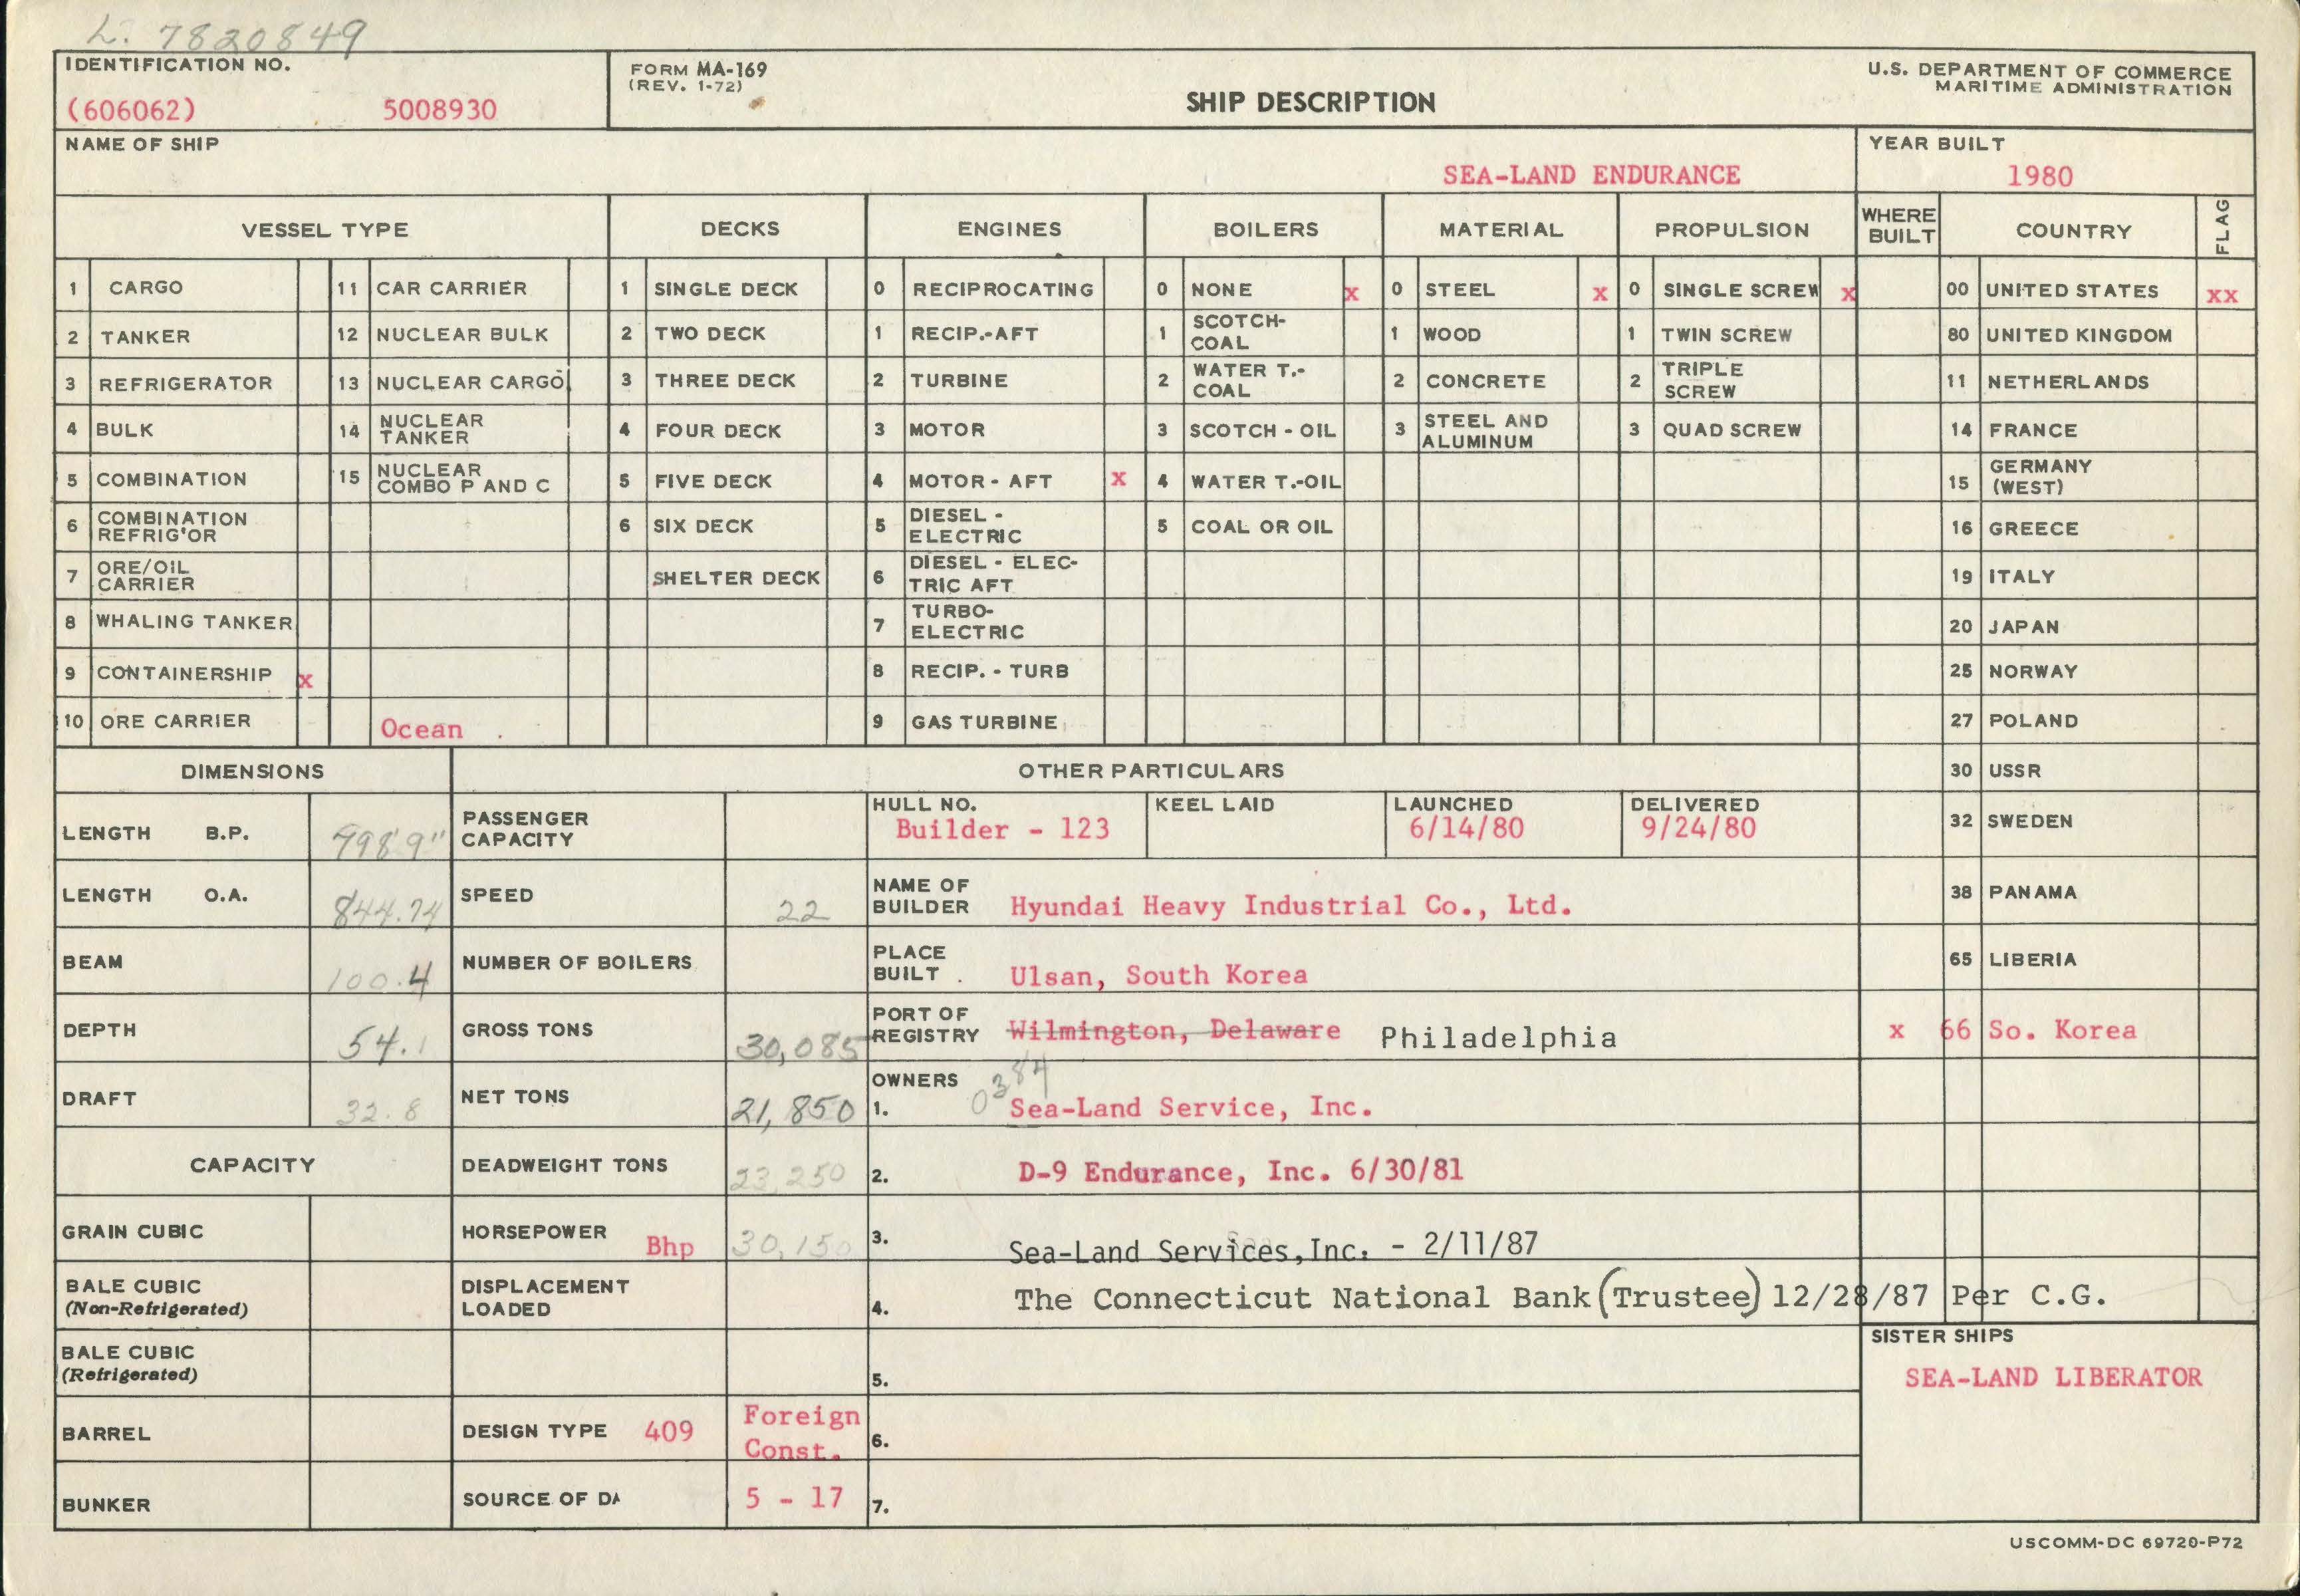 L. 7820849
IDENTIFICATION NO.
(606062) 5008930
FORM MA-169
(REV. 1-72)
SHIP DESCRIPTION
U.S. DEPARTMENT OF COMMERCE
MARITIME ADMINISTRATION
NAME OF SHIP
SEA-LAND ENDURANCE
YEAR BUILT
1980
VESSEL TYPE DECKS ENGINES BOILERS MATERIAL PROPULSION WHERE BUILT COUNTRY FLAG
1 CARGO 11 CAR CARRIER 1 SINGLE DECK 0 RECIPROCATING 0 NONE x 0 STEEL x 0 SINGLE SCREW x 00 UNITED STATES xx
2 TANKER 12 NUCLEAR BULK 2 TWO DECK 1 RECIP.-AFT 1 SCOTCH-COAL 1 WOOD 1 TWIN SCREW 80 UNITED KINGDOM
3 REFRIGERATOR 13 NUCLEAR CARGO 3 THREE DECK 2 TURBINE 2 WATER T.-COAL 2 CONCRETE 2 TRIPLE SCREW 11 NETHERLANDS
4 BULK 14 NUCLEAR TANKER 4 FOUR DECK 3 MOTOR 3 SCOTCH - OIL 3 STEEL AND ALUMINUM 3 QUAD SCREW 14 FRANCE
5 COMBINATION 15 NUCLEAR COMBO P AND C 5 FIVE DECK 4 MOTOR - AFT x 4 WATER T.-OIL 15 GERMANY (WEST)
6 COMBINATION REFRIG'OR 6 SIX DECK 5 DIESEL - ELECTRIC 5 COAL OR OIL 16 GREECE
7 ORE/OIL CARRIER SHELTER DECK 6 DIESEL - ELECTRIC AFT 19 ITALY
8 WHALING TANKER 7 TURBO-ELECTRIC 20 JAPAN
9 CONTAINERSHIP x 8 RECIP. - TURB 25 NORWAY
10 ORE CARRIER Ocean 9 GAS TURBINE 27 POLAND
DIMENSIONS OTHER PARTICULARS 30 USSR
LENGTH B.P. 798'9" PASSENGER CAPACITY
HULL NO. Builder - 123 KEEL LAID LAUNCHED 6/14/80 DELIVERED 9/24/80 32 SWEDEN
LENGTH O.A. 844.74 SPEED 22 NAME OF BUILDER Hyundai Heavy Industrial Co., Ltd. 38 PANAMA
BEAM 100.4 NUMBER OF BOILERS PLACE BUILT Ulsan, South Korea 65 LIBERIA
DEPTH 54.1 GROSS TONS 30,085 PORT OF REGISTRY Wilmington, Delaware Philadelphia x 66 So. Korea
DRAFT 32.8 NET TONS 21,850 OWNERS 0384
1. Sea-Land Service, Inc.
CAPACITY DEADWEIGHT TONS 23,250 2. D-9 Endurance, Inc. 6/30/81
GRAIN CUBIC HORSEPOWER Bhp 30,150 3. Sea-Land Services,Inc. - 2/11/87
BALE CUBIC (Non-Refrigerated) DISPLACEMENT LOADED 4. The Connecticut National Bank (Trustee) 12/28/87 Per C.G.
BALE CUBIC (Refrigerated) 5.
SISTER SHIPS
SEA-LAND LIBERATOR
BARREL DESIGN TYPE 409 Foreign Const. 6.
BUNKER SOURCE OF DA 5 - 17 7.
USCOMM-DC 69720-P72